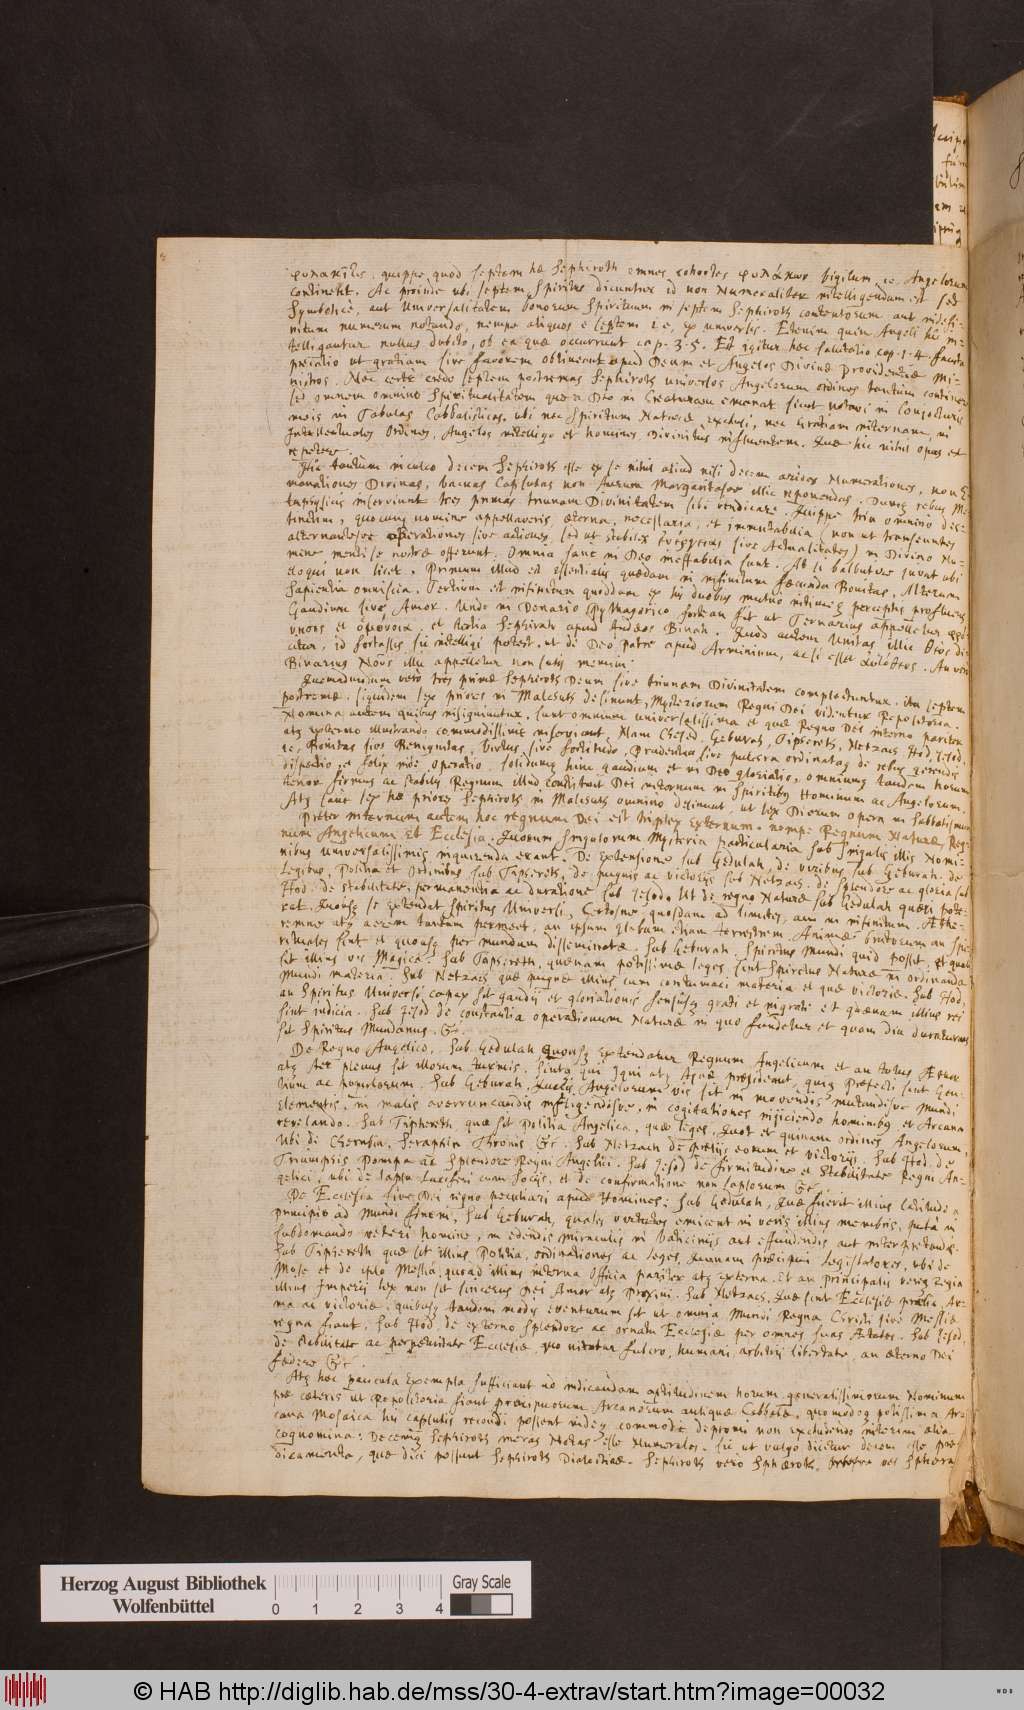 φυλακῖτις, quippe quod septem hæ Sephiroth omnes cohortes φυλάκων vigilum i.e. Angelorum
continent. Ac proinde ubi septem Spiritus dicuntur id non Numeraliter intelligendum est sed
Symbolicè, aut Universalitatem bonorum Spirituum in septem Sephiroth contentorum aut indefi-
nitum numerum notando, nempe aliquos e septem i.e. ex universis. Etenim quin Angeli hic in-
telligantur nullus dubito, ob ea quæ occurrunt cap. 3. 5. Est igitur hæc salutatio cap. 1. 4. facta
precatio ut gratiam sive favorem obtineant apud Deum et Angelos Divinæ Providentiæ Mi-
nistros. Nec certè credo septem postremas Sephiroth universos Angelorum ordines tantùm continere
sed omnem omninò Spiritualitatem quæ a Deo in Creaturam emanat sicut notavi in Conjecturis
meis in Tabulas Cabbalisticas, ubi nec Spiritum Naturæ exclusi, nec Gratiam internam, in
Intellectuales Ordines, Angelos intelligo et homines Divinitus influentem. Quæ hic nihil opus est
repetere.
Hic tantum inculco decem Sephiroth esse ex se nihil aliud nisi decem Numerationes, non E-
manationes Divinas, vacuas Capsulas non Margaritasve illic reponendas. Dumq rebus Me-
taphysicis inserviunt tres primas triunam Divinitatem sibi vendicare. Quippe tria omnino dis-
tinctim, quocunq nomine appellaveris, æterna, necessaria, et immutabilia (non ut transeuntes
alternantesve operationes sive actiones, sed ut stabiles ἐνεργείας sive Actualitates) in Divino Nu-
mine menti se nostræ offerunt. Omnia sanè in Deo ineffabilia sunt. At si balbutire juvat ubi
eloqui non licet. Primum illud est essentialis quædam in infinitum fæcunda Bonitas. Alterum
Sapientia omniscia. Tertium est infinitum quoddam ex his duobus mutuo intimeq perceptis profluens
Gaudium sive Amor. Unde in Denario Pythagorico forsan fit ut Ternarius appelletur
et ὁμόνοια, et tertia Sephirah apud Judæos Binah. Quod autem Unitas illic Θεος di-
citur, id fortassis sic intelligi potest, ut de Deo patre apud Arminium, ac si esset αὐτόθεος. An verò
Binarius Νοῦς illic appelletur non satis memini.
Quemadmodum verò tres primæ Sephiroth Deum sive triunam Divinitatem complectuntur, ita septem
postremæ, siquidem sex priores in Malcuth desinunt, Mysteriorum Regni Dei videntur Repositoria.
Nomina autem quibus insigniuntur, sunt omnium universalissima et quæ Regno Dei interno pariter
atq externo illustrando commodissimè inserviant. Nam Chesed, Geburah, Tiphereth, Netzach, Hod, Jesod,
i.e. Bonitas sive Benignitas, Virtus sive fortitudo, Prudentia sive pulcra ordinatioq de rebus gerendis
dispositio, et felix inde operatio, solidumq hinc gaudium et in Deo gloriatio, omniumq tandem horum
tenor firmus ac stabilis Regnum illud constituit Dei internum in Spiritibus Hominum ac Angelorum.
Atq sanè sex hæ priores Sephiroth in Malcuth omnino desinunt, ut sex Dierum opera in Sabbatismum.
Præter internum autem hoc regnum Dei est triplex externum. nempe Regnum Naturæ, Reg-
num Angelicum et Ecclesia. Quorum singulorum Mysteria particularia sub singulis illis Nomi-
nibus universalissimis inquirenda erant. De Extensione sub Gedulah, de viribus sub Geburah. de
Legibus, Politia et Ordinibus sub Tiphereth, de pugnis ac victoriis sub Netzach. de splendore ac gloria sub
Hod. de stabilitate, permanentia ac duratione sub Jesod. Ut de regno Naturæ sub Gedulah quæri pote-
rat. Quousq se extendat Spiritus Universi, Certosne quosdam ad limites, an in infinitum. Æthe-
remne atq aerem tantum permeet, an ipsum globum etiam terrestrem. Animæ brutorum an Spi-
rituales sint et quousq per mundum disseminatæ. Sub Geburah. Spiritus Mundi quid possit, et qualis
sit illius vis Magica. Sub Tiphereth, quænam potissimæ leges sint Spiritus Naturæ in ordinanda
Mundi materia. Sub Netzach quæ pugnæ illius cum contumaci materia et quæ victoriæ. Sub Hod,
an Spiritus Universi capax sit gaudij et gloriationis sensusq grati et ingrati et quænam illius rei
sint indicia. Sub Jesod de constantia operationum Naturæ in quo fundetur et quam diu duraturus
sit Spiritus Mundanus. &c.
De Regno Angelico. Sub Gedulah Quousq Extendatur Regnum Angelicum et an totus Æther
atq Aer plenus sit illorum turmis. Sintq qui Igni atq Aquæ præsideant, quiq Præfecti sint Gen-
tium ac populorum. Sub Geburah. Qualis Angelorum vis sit in movendis mutandisve Mundi
Elementis, in malis averruncandis infligendisve, in cogitationes injiciendo hominibus et Arcana
revelando. Sub Tiphereth, quæ sit Politia Angelica, quæ leges, Quot et quinam ordines Angelorum,
Ubi de Cherubin, Seraphin Thronis &c. Sub Netzach de prælijs eorum et victorijs. Sub Hod de
Triumphis Pompa ac Splendore Regni Angelici. Sub Jesod de firmitudine et stabilitate Regni An-
gelici, ubi de lapsu Luciferi cum Socijs, et de confirmatione non lapsorum &c.
De Ecclesia sive Dei regno peculiari apud Homines: Sub Gedulah, Quæ fuerit illius latitudo a
principio ad Mundi finem, Sub Geburah, quales virtutes emicent in veris illius membris, puta in
subdomando veteri homine, in edendis miraculis in Vaticinijs aut effundendis aut interpretandis.
Sub Tiphereth quæ sit illius Politia, ordinationes ac leges, Quinam præcipui Legislatores, ubi de
Mose et de ipso Messia, quoad illius interna officia pariter atq externa. Et an principalis vereq regia
illius Imperij lex non sit sincerus Dei Amor atq Proximi. Sub Netzach, Quæ sint Ecclesiæ prælia, Ar-
ma ac victoriæ, quibusq tandem modis eventurum sit ut omnia Mundi Regna Christi sive Messiæ
regna fiant. Sub Hod de externo splendore ac ornatu Ecclesiæ per omnes suas Ætates. Sub Jesod,
de stabilitate ac perpetuitate Ecclesiæ, quo nitatur fulcro, humani arbitrij libertate, an æterno Dei
fædere &c.
Atq hæc paucula Exempla sufficiant ad indicandam aptitudinem horum generalissimorum Nominum
præ cæteris ut Repositoria fiant præcipuorum Arcanorum antiquæ Cabbalæ, quomodoq potissima Ar-
cana Mosaica his capsulis recondi possent indeq commodè depromi non excludendo interim alia
cognomina: Decemq Sephiroth meras Notas esse Numerales. Sic ut vulgò dicitur decem esse præ-
dicamenta, quæ dici possunt Sephiroth Dialecticæ. Sephiroth verò Sphæroth, vel Sphæra
Herzog August Bibliothek
Wolfenbüttel
0 1 2 3 4
Gray Scale
© HAB http://diglib.hab.de/mss/30-4-extrav/start.htm?image=00032